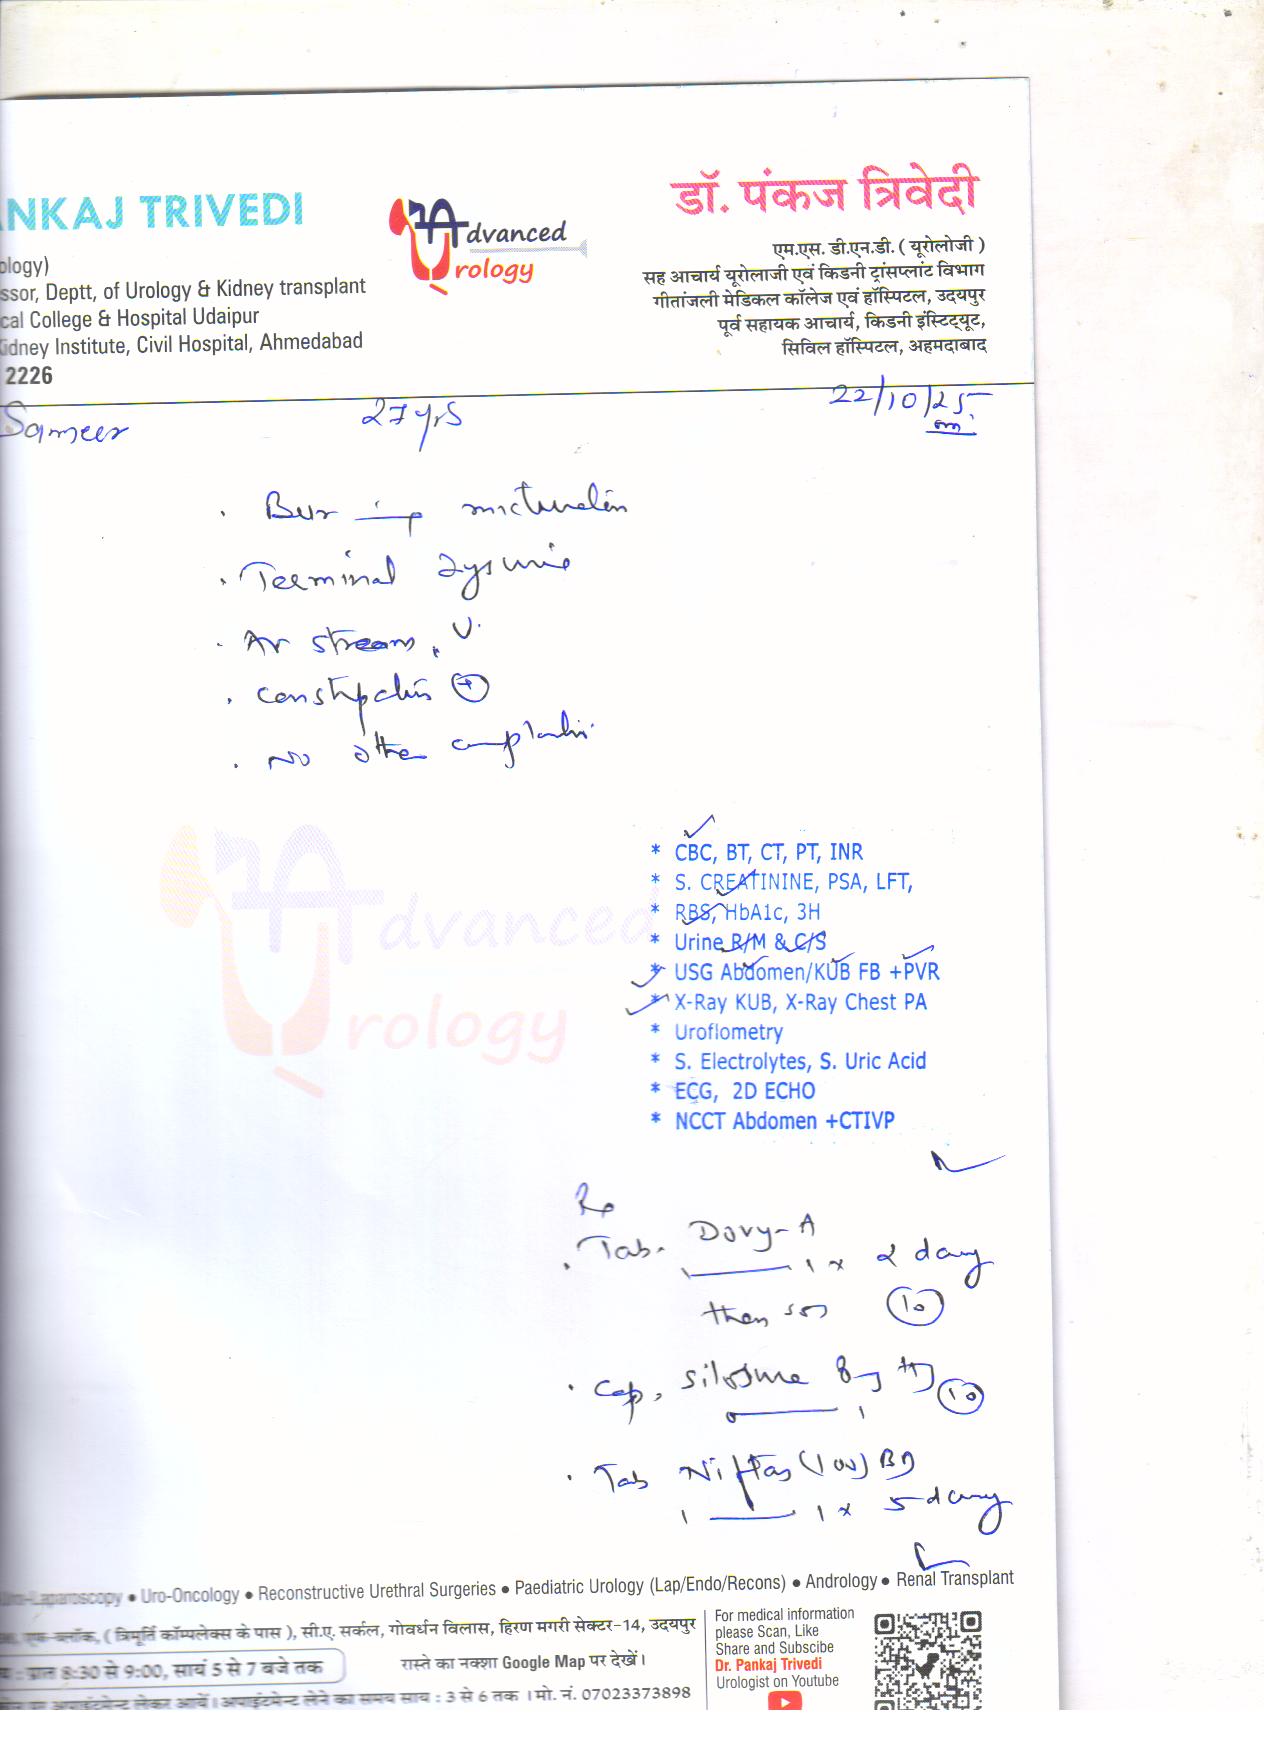 NKAJ TRIVEDI
Advanced
Urology
डॉ. पंकज त्रिवेदी
एम.एस. डी.एन.डी. ( यूरोलोजी )
सह आचार्य यूरोलाजी एवं किडनी ट्रांसप्लांट विभाग
गीतांजली मेडिकल कॉलेज एवं हॉस्पिटल, उदयपुर
पूर्व सहायक आचार्य, किडनी इंस्टिट्यूट,
सिविल हॉस्पिटल, अहमदाबाद
ology)
ssor, Deptt, of Urology & Kidney transplant
cal College & Hospital Udaipur
idney Institute, Civil Hospital, Ahmedabad
2226
Sameer 27 yrs 22/10/25
. Burning micturition
. Terminal dysuria
. Av stream
. Constipation +
. No other complaints
* CBC, BT, CT, PT, INR
* S. CREATININE, PSA, LFT,
* RBS, HbA1c, 3H
* Urine R/M & C/S
* USG Abdomen/KUB FB +PVR
* X-Ray KUB, X-Ray Chest PA
* Uroflometry
* S. Electrolytes, S. Uric Acid
* ECG, 2D ECHO
* NCCT Abdomen +CTIVP
Advanced
Urology
Rx
. Tab. Dovy-A
1 — 1 x 2 days
then sos 10
. Cap. 8mg 10
0 — 1
. Tab Niftas (100) BD
1 — 1 x 5 days
Uro-Laparoscopy • Uro-Oncology • Reconstructive Urethral Surgeries • Paediatric Urology (Lap/Endo/Recons) • Andrology • Renal Transplant
एफ-ब्लॉक, ( त्रिमूर्ति कॉम्पलेक्स के पास ), सी.ए. सर्कल, गोवर्धन विलास, हिरण मगरी सेक्टर-14, उदयपुर
: प्रात 8:30 से 9:00, सायं 5 से 7 बजे तक
रास्ते का नक्शा Google Map पर देखें।
अपाइंटमेन्ट लेकर आयें। अपाइंटमेन्ट लेने का समय साय : 3 से 6 तक । मो. नं. 07023373898
For medical information
please Scan, Like
Share and Subscibe
Dr. Pankaj Trivedi
Urologist on Youtube